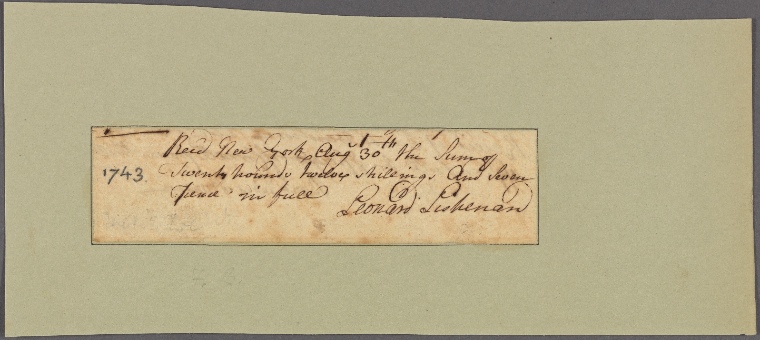 Recd New York Augst 30th the Sum of
1743 Twenty pounds twelve shillings And Seven
pence in full
Leonard Lispenard